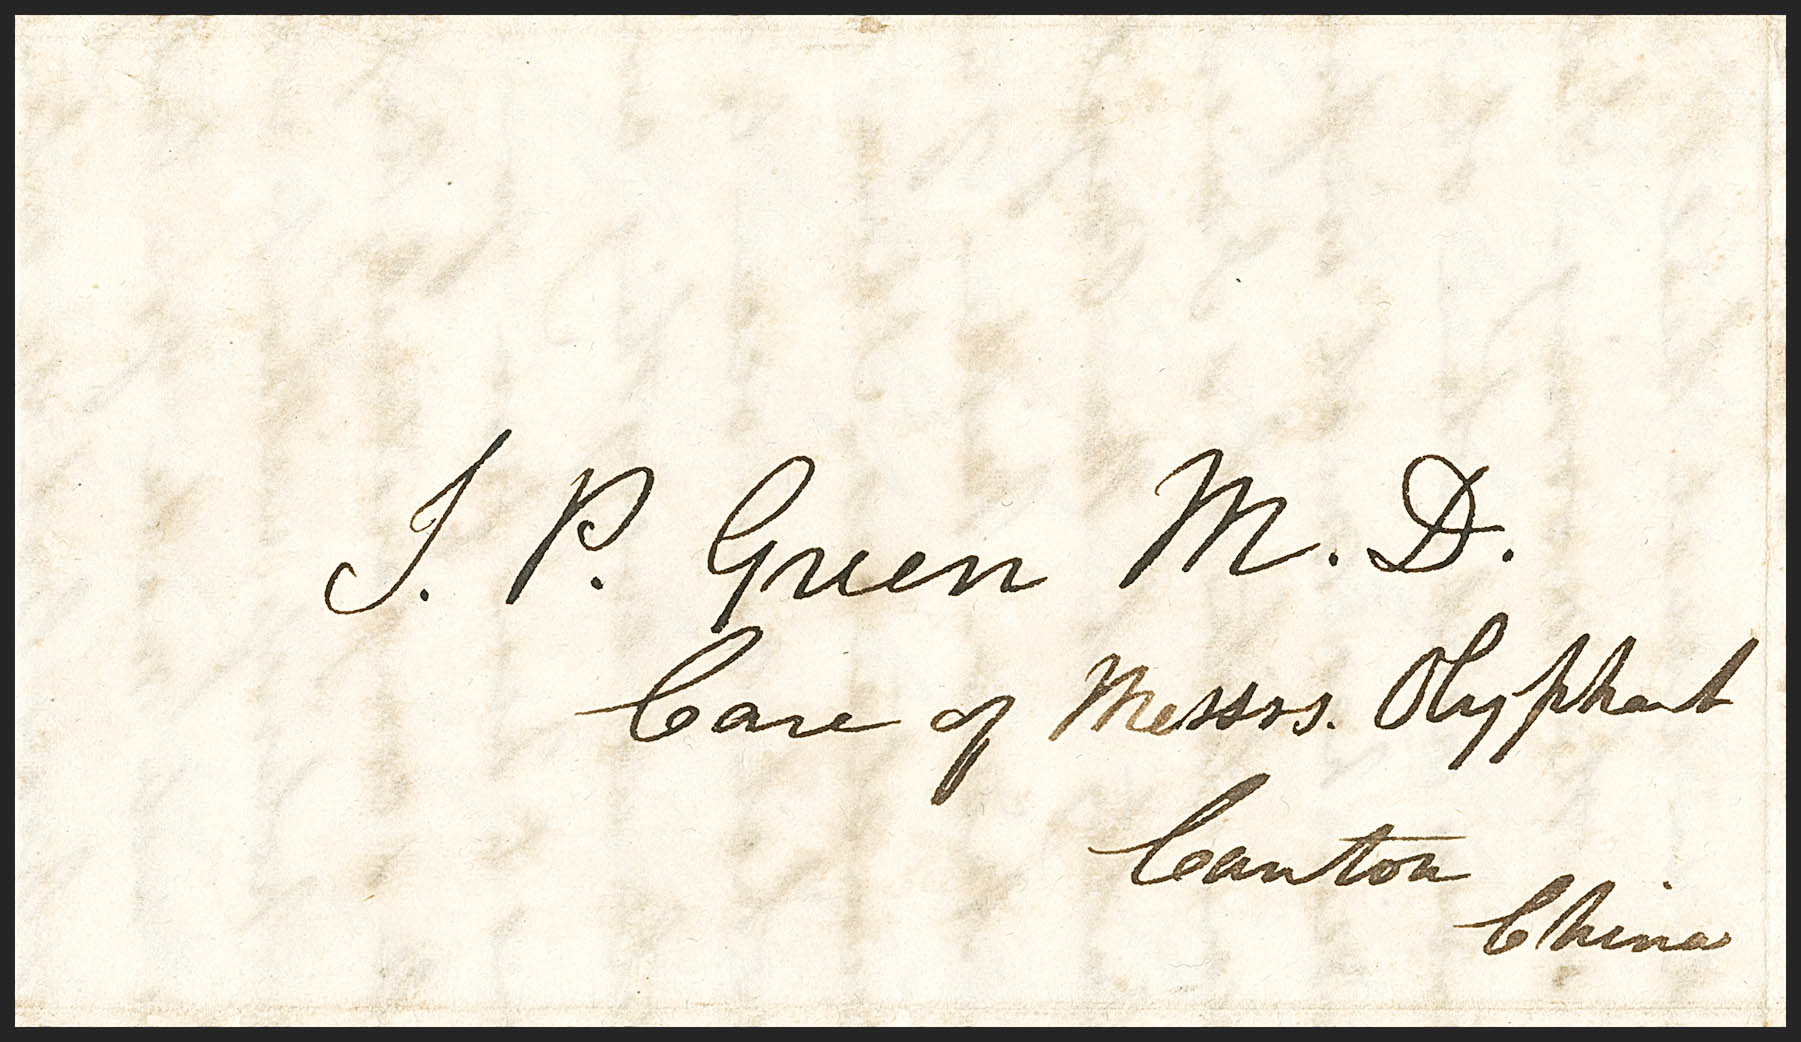 J. P. Green M. D.
Care of Messrs. Olyphant
Canton
China